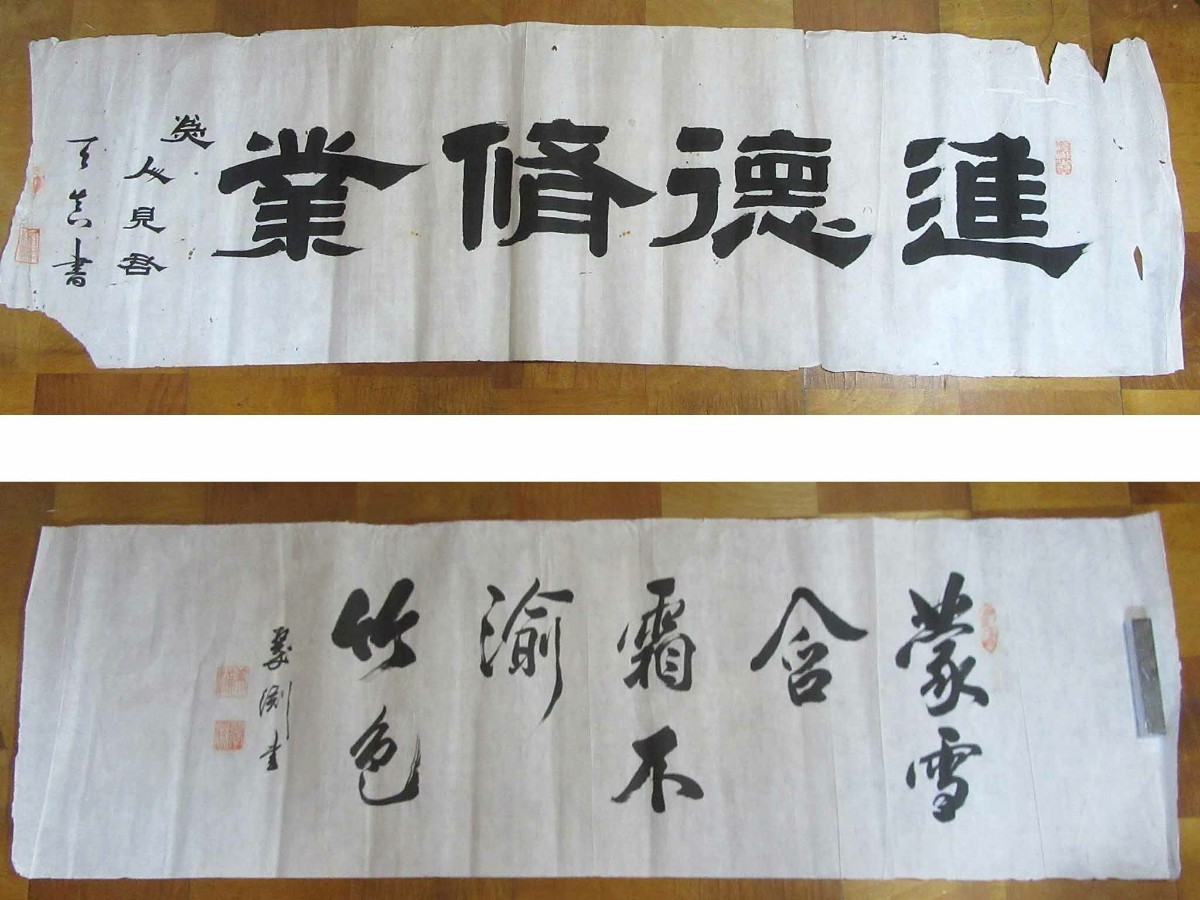 進德脩業
人見君
書
蒙雪
含
霜不
渝
竹色
書